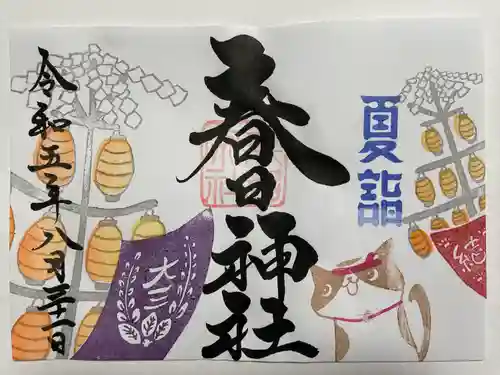 夏詣
春日神社
令和五年八月二十一日
大三